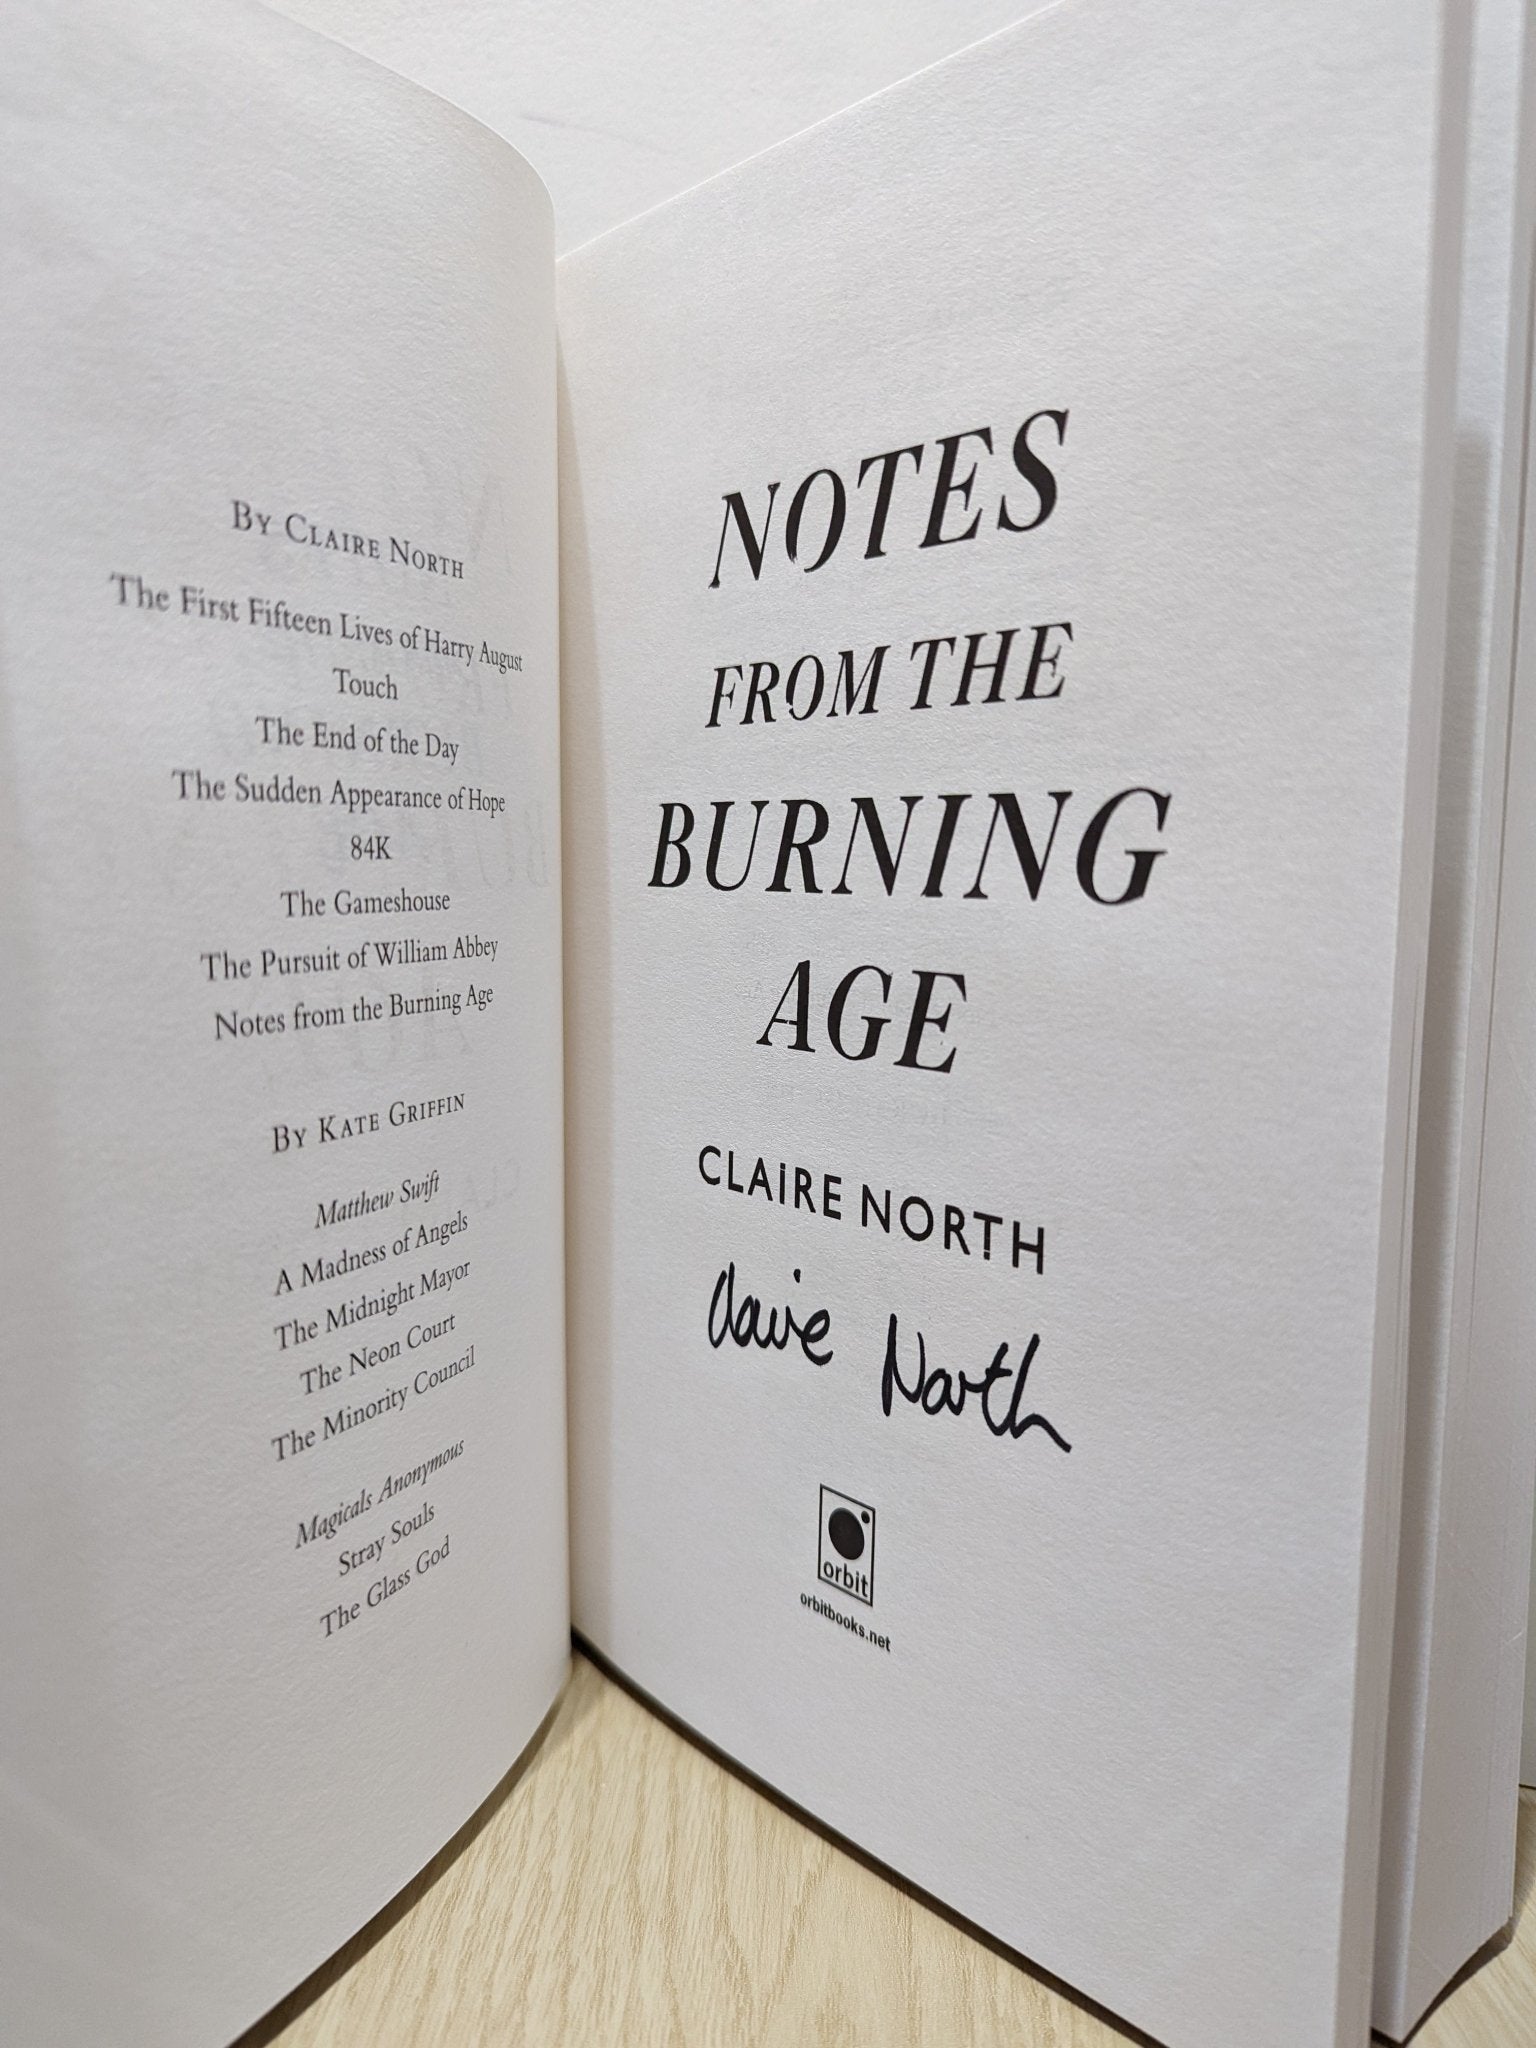 BY CLAIRE NORTH
The First Fifteen Lives of Harry August
Touch
The End of the Day
The Sudden Appearance of Hope
84K
The Gameshouse
The Pursuit of William Abbey
Notes from the Burning Age
BY KATE GRIFFIN
Matthew Swift
A Madness of Angels
The Midnight Mayor
The Neon Court
The Minority Council
Magicals Anonymous
Stray Souls
The Glass God
NOTES
FROM THE
BURNING
AGE
CLAIRE NORTH
Claire North
orbit
orbitbooks.net